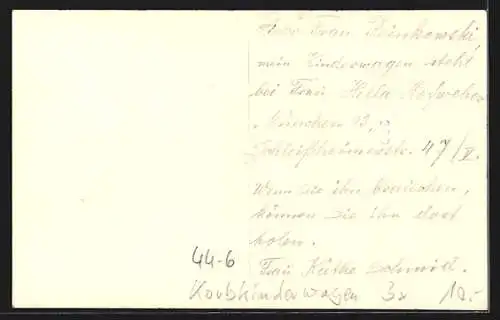 Frau Pinkowski
mein Kinderwagen steht
bei Frau Hela
München 13,
Schleißheimerstr. 47/II.
Wenn sie ihn brauchen,
können sie ihn dort
holen.
Frau Käthe Schmidt.
44-6
Korbkinderwagen 3x 10.-